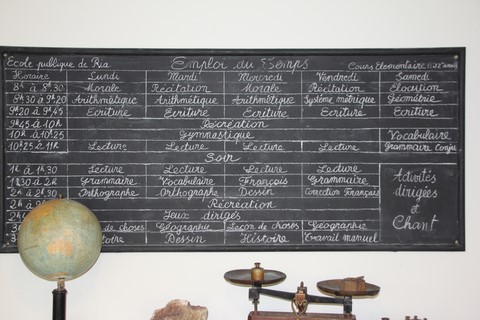 Ecole publique de Ria Emploi du Temps Cours Elémentaire
Horaire Lundi Mardi Mercredi Vendredi Samedi
8h à 8h30 Morale Récitation Morale Récitation Elocution
8h30 à 9h20 Arithmétique Arithmétique Arithmétique Système métrique Géométrie
9h20 à 9h45 Ecriture Ecriture Ecriture Ecriture Ecriture
9h45 à 10h Récréation
10h à 10h25 Gymnastique Vocabulaire
10h25 à 11h Lecture Lecture Lecture Lecture Grammaire Conju
Soir
1h à 1h30 Lecture Lecture Lecture Lecture
1h30 à 2h Grammaire Vocabulaire Français Grammaire Activités
2h à 2h30 Orthographe Orthographe Dessin Correction Français dirigées
Récréation et
Jeux dirigés Chant
de choses Géographie Leçon de choses Géographie
toire Dessin Histoire Travail manuel